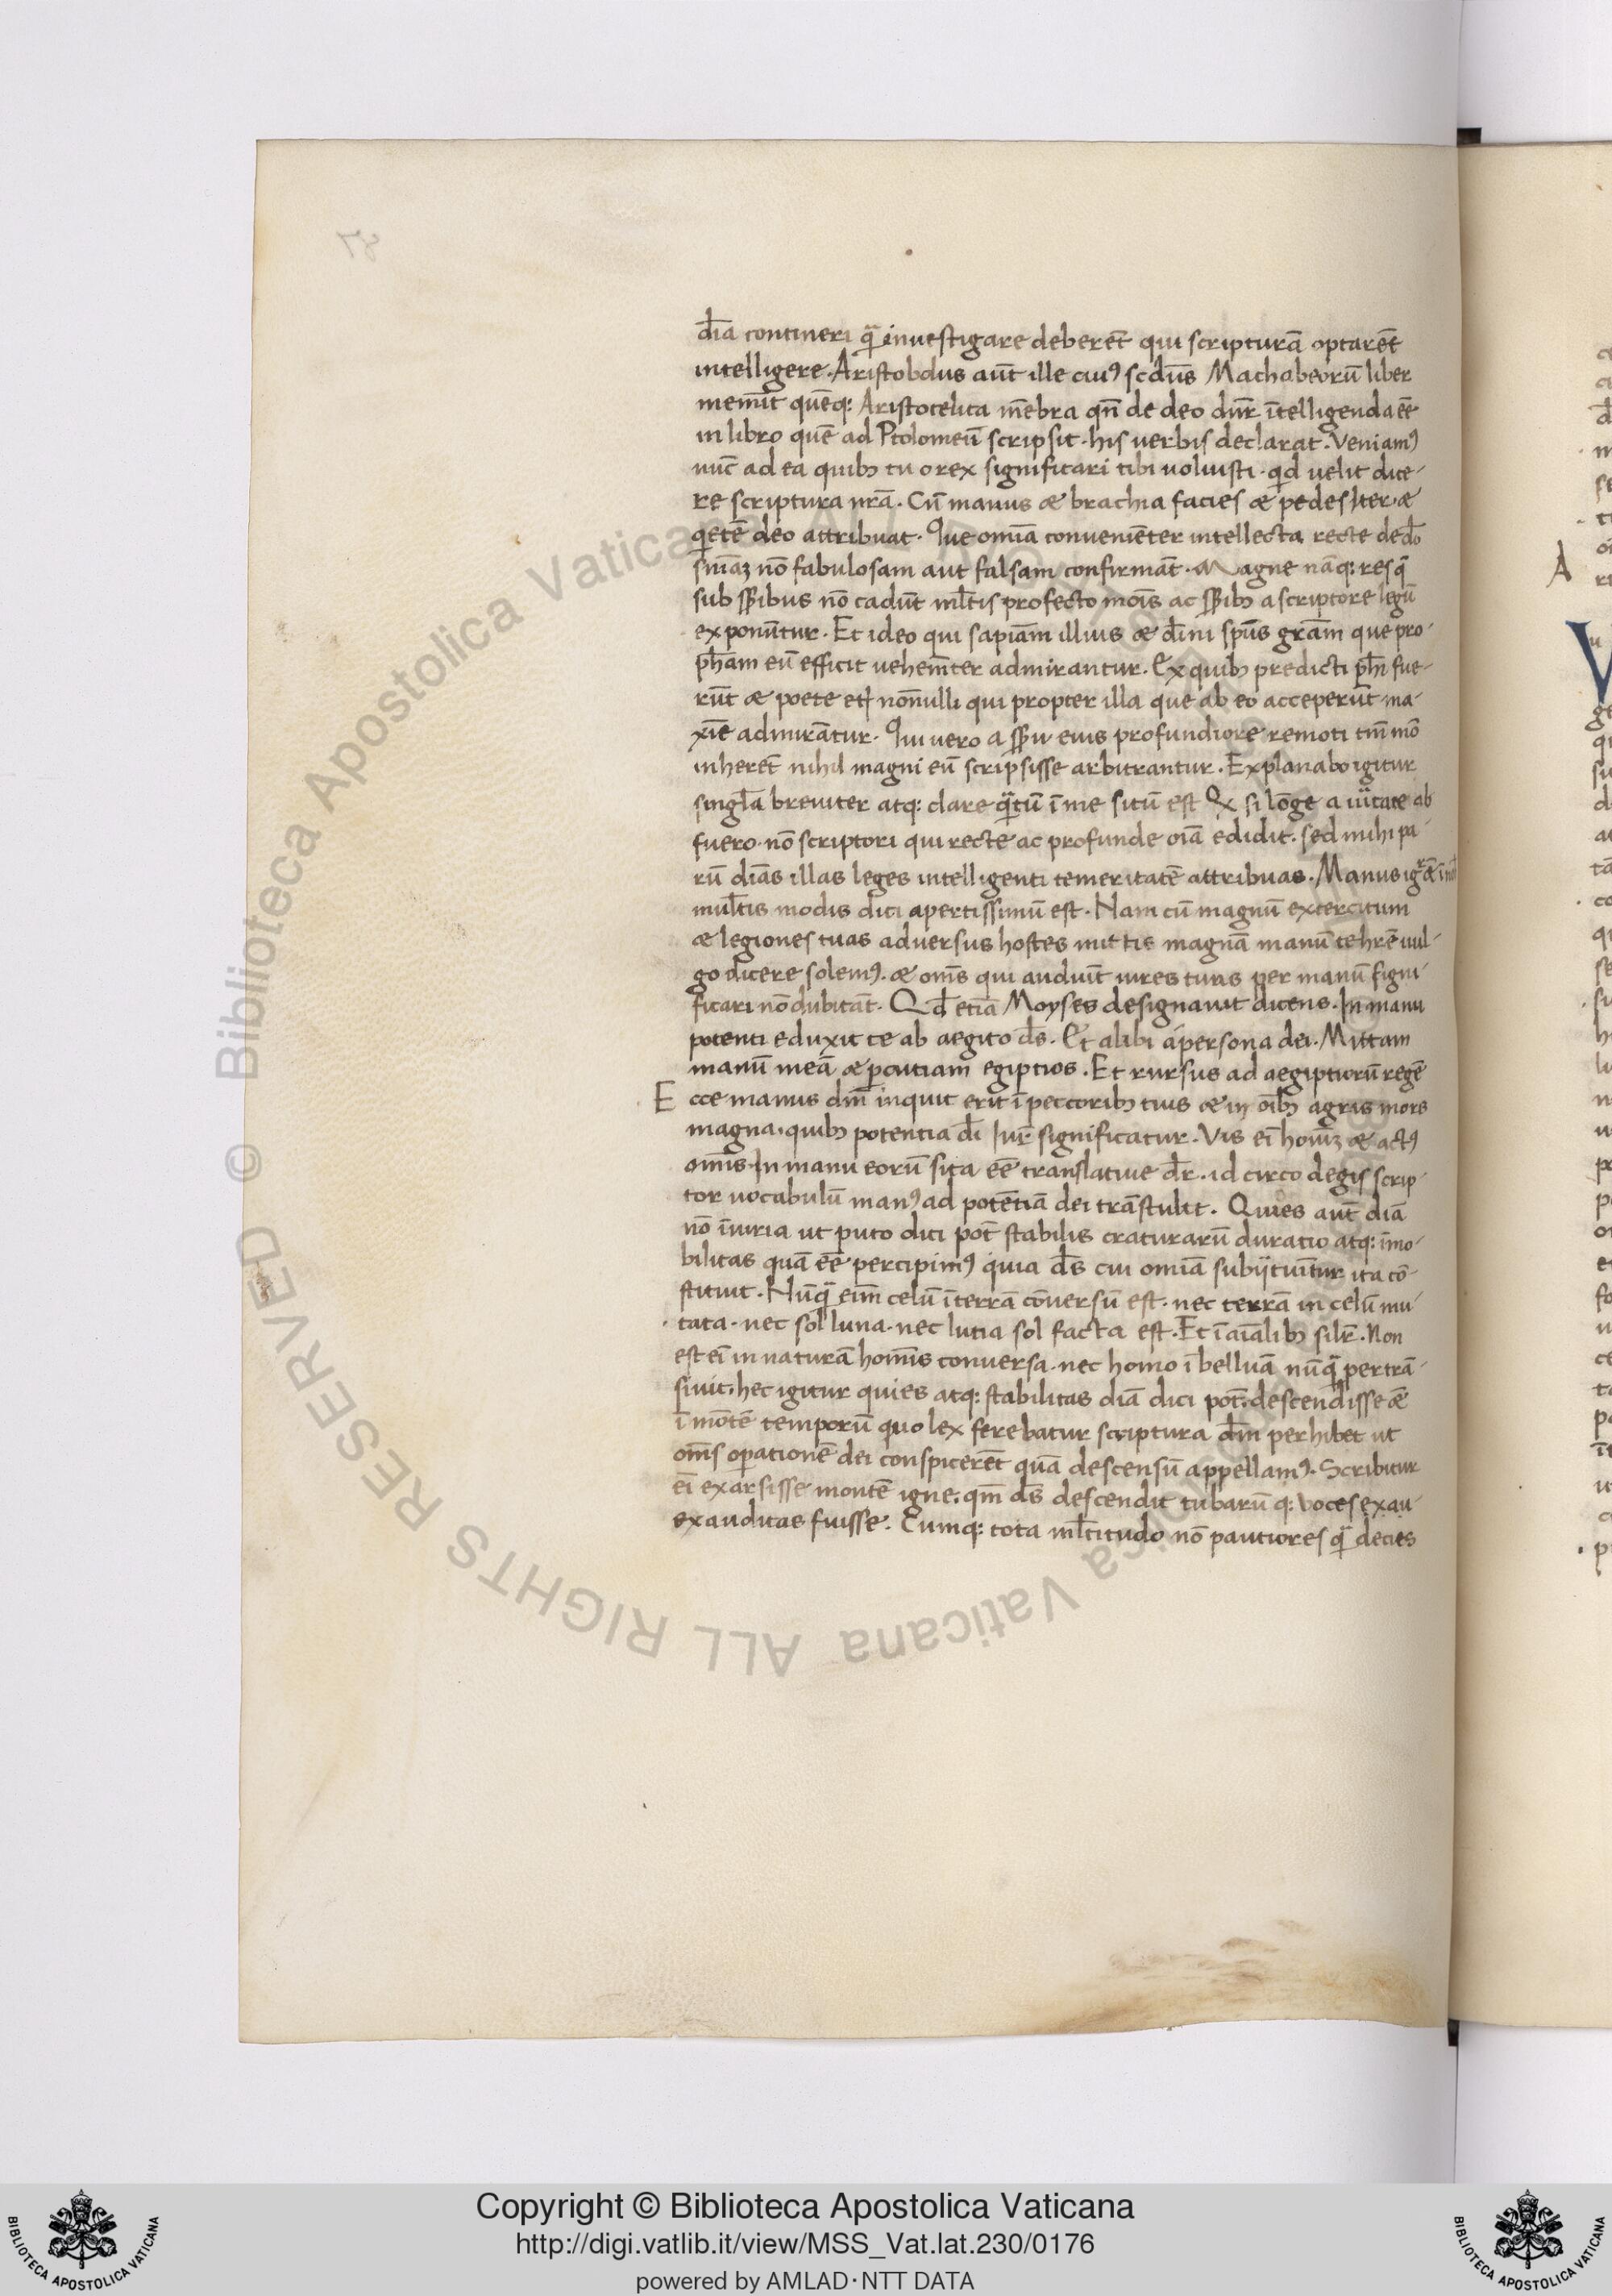 dīa contineri q̄ȝ inuestigare deberēt qui scripturā optarēt
intelligere. Aristobolus aūt ille cuiꝰ scdūs Machabeorū liber
memīt quēq: Aristotelica mēbra qn̄ de deo dnr̄ ītelligenda eē
in libro quē ad Ptolomeū scripsit. his uerbis declarat. Veniamꝰ
nūc ad ea quibȝ tu o rex significari tibi uoluisti. qd uelit dice-
re scriptura nrā. Cū manus æ brachia facies æ pedes æ
deo attribuat. Que omīa conueniēter intellecta recte de
nō fabulosam aut falsam confirmāt. Magne nāq: res
sub nō cadūt ml̄tis profecto ac a scriptore legū
exponūtur. Et ideo qui sapiām illius æ dīni spūs grām que pro-
ph̄am eū efficit uehemt̄er admirantur. Ex quibȝ predicti ph̄i fue-
rūt æ poete et nōnulli qui propter illa que ab eo acceperūt ma-
xīe admirātur. Qui uero a eius profundiore remoti tm̄
inherēt nihil magni eū scripsisse arbitrantur. Explanabo igitur
singl̄a breuiter atq: clare ī me sitū est si lōge a ab
fuero. nō scriptori qui recte ac profunde oīa edidit. sed mihi pa-
rū dīas illas leges intelligenti temeritatē attribuas. Manus
mul̄tis modis dici apertissimū est. Nam cū magnū exercitum
æ legiones tuas aduersus hostes mittis magnā manū te uul-
go dicere solemꝰ. æ omīs qui audiūt uires tuas per manū signi-
ficari nō dubitāt. Qd̄ etiā Moyses designauit dicens. In manu
potenti eduxit te ab aegito d̄s. Et alibi a persona dei. Mittam
manū meā æ percutiam egiptios. Et rursus ad aegiptiorū regē
E cce manus dm̄ inquit erit ī peccoribȝ tuis æ in oībȝ agris mors
magna. quibȝ potentia dī significatur. Vis eī æ actꝰ
omīs. In manu eorū sita eē translatiue dr̄. id circo legis scrip-
tor uocabulū manꝰ ad potētiā dei trāstulit. Quies aūt diā
nō īiuria ut puto dici pōt stabilis craturarū duratio atq: īmo-
bilitas quā eē percipimꝰ quia d̄s cui omīa ita cō-
stituit. Nūq̄ȝ eīm celū ī terrā cōuersū est. nec terrā in celū mu-
tata. nec sol luna. nec luna sol facta est. Et ī aīalibȝ silr̄. Non
est eī in naturā homīs conuersa. nec homo ī belluā nūq̄ȝ pertrā-
siuit. hec igitur quies atq: stabilitas diā dici pōt. descendisse æ
ī mōtē temporū quo lex ferebatur scriptura dm̄ perhibet ut
omīs operationē dei conspicerēt quā descensū appellamꝰ. Scribitur
eī exarsisse montē igne. qm̄ d̄s descendit tubarū q: uoces exau-
exauditas fuisse. Cumq: tota ml̄titudo nō pautiores q̄ȝ decies
Copyright © Biblioteca Apostolica Vaticana
http://digi.vatlib.it/view/MSS_Vat.lat.230/0176
powered by AMLAD·NTT DATA